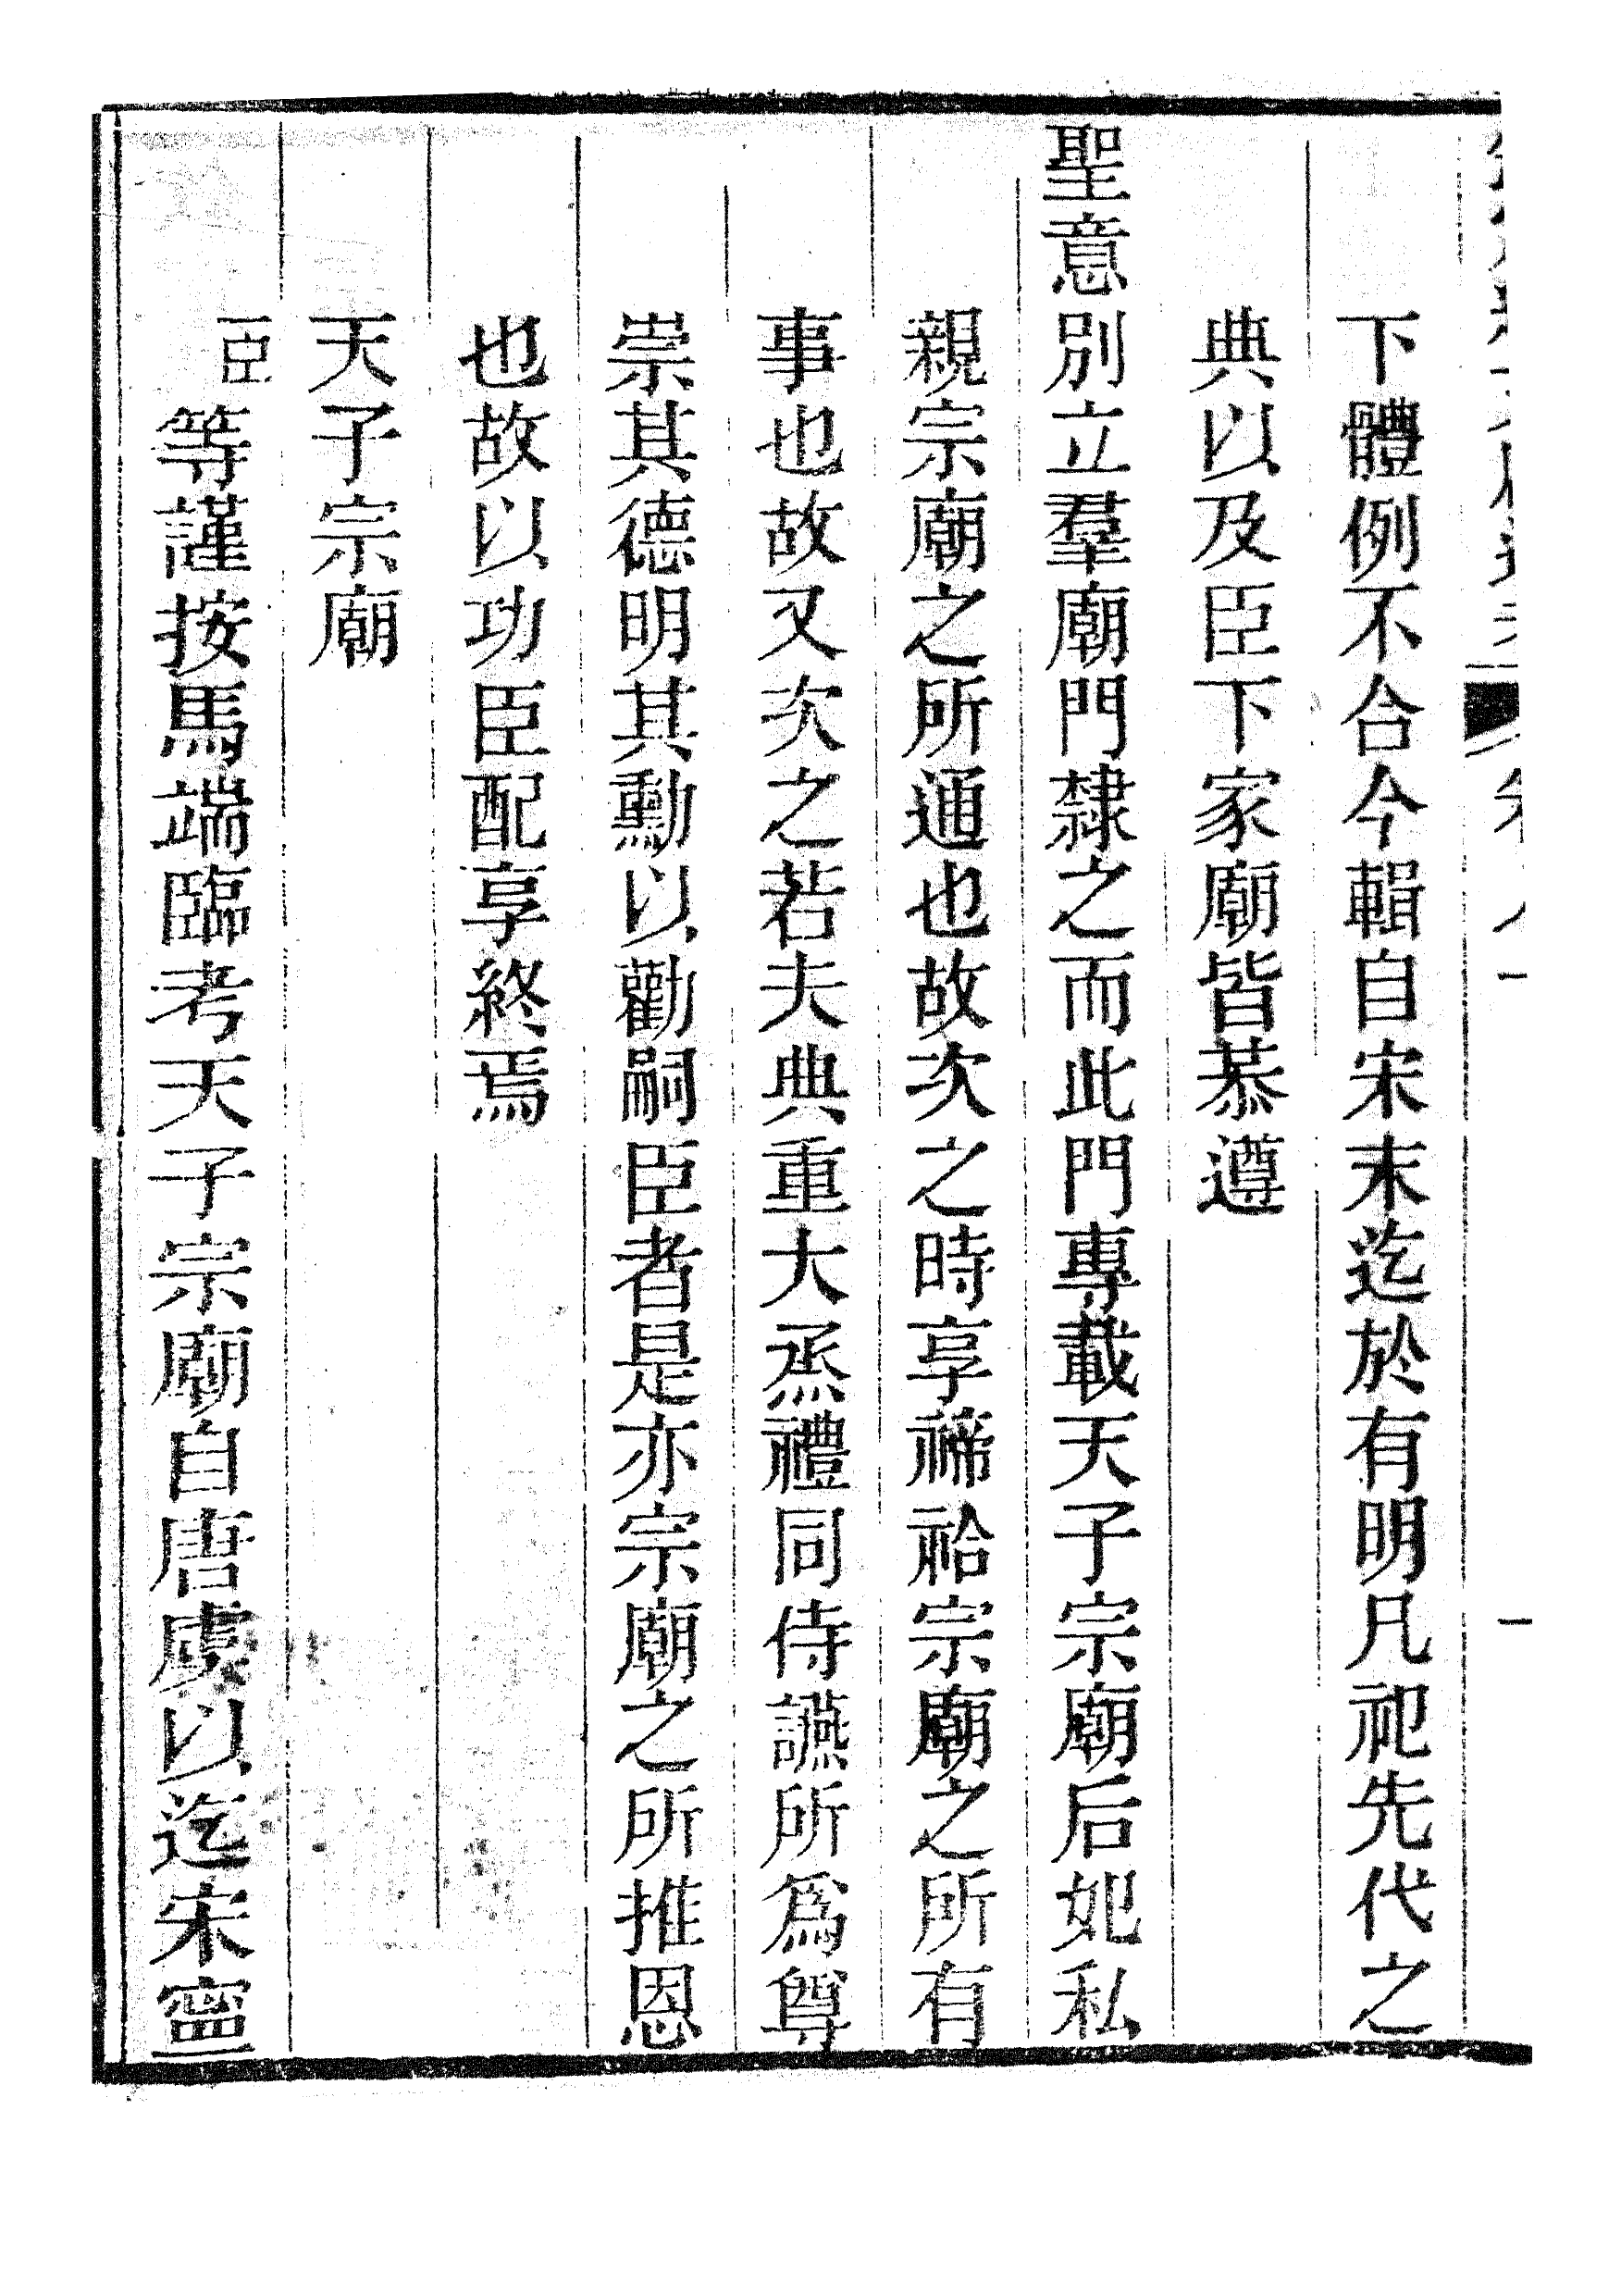 下體例不合今輯自宋末迄於有明凡祀先代之
典以及臣下家廟皆恭遵
聖意別立羣廟門隸之而此門專載天子宗廟后妃私
親宗廟之所通也故次之時享禘祫宗廟之所有
事也故又次之若夫典重大烝禮同侍讌所爲尊
崇其德明其勳以勸嗣臣者是亦宗廟之所推恩
也故以功臣配享終焉
天子宗廟
臣等謹按馬端臨考天子宗廟自唐虞以迄宋寧